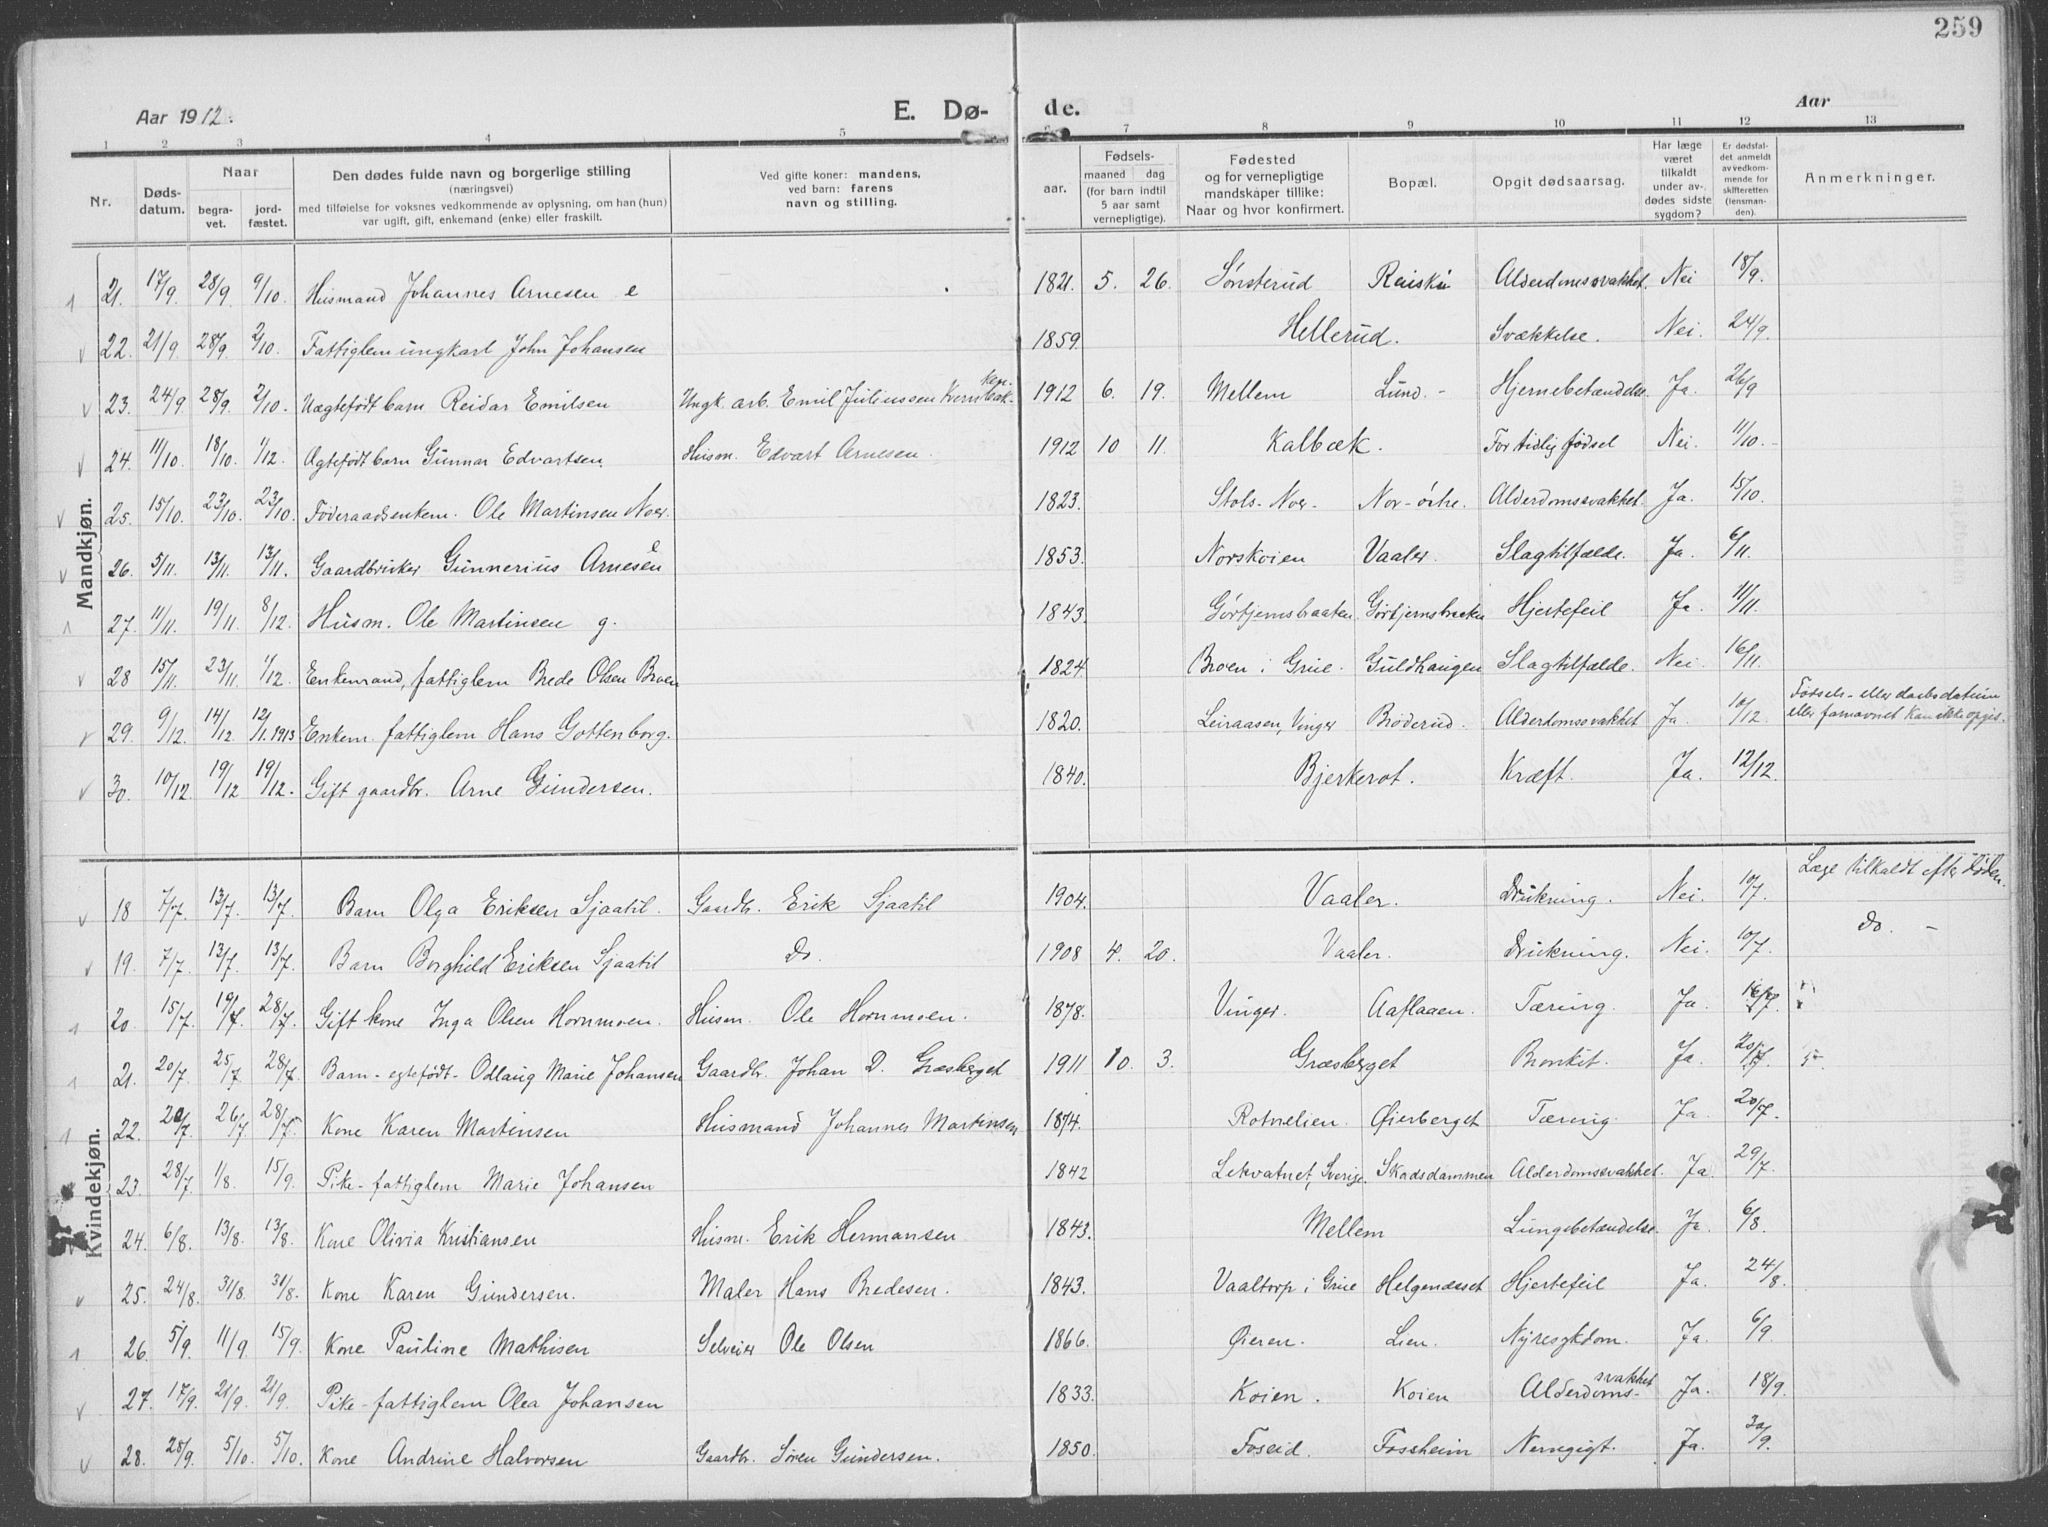 259
Aar 1912. E. Dø- de. Aar
1 2 3 4 5 6 7 8 9 10 11 12 13
Nr. Dødsdatum. Naar begravet. jordfæstet.
Den dødes fulde navn og borgerlige stilling
(næringsvei)
med tilføielse for voksnes vedkommende av oplysning, om han (hun)
var ugift, gift, enkemand (enke) eller fraskilt.
Ved gifte koner: mandens,
ved barn: farens
navn og stilling.
aar. Fødsels- maaned dag
(for barn indtil 5 aar samt vernepligtige).
Fødested
og for vernepligtige
mandskaper tillike:
Naar og hvor konfirmert.
Bopæl.
Opgit dødsaarsag.
Har læge været tilkaldt under avdødes sidste sygdom?
Er dødsfaldet anmeldt av vedkommende for skifteretten (lensmanden).
Anmerkninger.
Mandkjøn.
21. 17/9 28/9 9/10. Husmand Johannes Arnesen e 1821. 5. 26. Sønsterud Alderdomssvakhet. Nei 18/9.
22. 21/9 28/9. 2/10. Fattiglem ungkarl John Johansen 1859. Hellerud. Svækkelse. Nei. 24/9.
23. 24/9 28/9 2/10. Uægtefødt barn Reidar Emilsen Ungk. arb. Emil Juliussen 1912 6. 19. Mellem Lund. - Hjernebetændelse. Ja. 26/9
24. 11/10 18/10. 1/12. Ægtefødt barn Gunnar Edvartsen. Husm. Edvart Arnesen. 1912 10 11. Kalbæk. For tidlig fødsel Nei. 11/10. -
25. 15/10 23/10. 23/10. Føderaadsenkem. Ole Martinsen Noer. 1823. Stols-Noer- Alderdomssvakhet. Ja. 15/10.
26. 5/11. 13/11. 13/11. Gaardbruker Gunnerius Arnesen e 1853. Norskoien Vaaler. Slagtilfælde. Ja. 6/11.
27. 11/11. 19/11. 8/12. Husm. Ole Martinsen g. 1843. Gørtjernsbraaten Gørtjernsbraaten Hjertefeil Ja. 11/11.
28 15/11. 23/11. 1/12. Enkemand, fattiglem Brede Olsen Broen 1824. Broen i Grue. Guldhaugen Slagtilfælde. Nei. 16/11.
29. 9/12. 14/12. 12/1. 1913 Enkem. fattiglem Hans Gottenborg. 1820. Leiraasen, Vinger Brøderud. Alderdomssvakhet Ja. 10/12. Fødsels- eller daabsdatum
eller farnavnet kan ikke opgis.
30. 10/12. 19/12 19/12. Gift gaardbr. Arne Gundersen. 1840. Bjerkerot. Kræft. Ja. 12/12.
Kvindekjøn.
18 7/7. 13/7. 13/7. Barn Olga Eriksen Sjaatil. Gaardbr. Erik Sjaatil 1904. Vaaler. Drukning. Nei. 10/7. Læge tilkaldt efter døden.
19. 7/7. 13/7. 13/7. Barn Borghild Eriksen Sjaatil Do. 1908 4. 20. Vaaler. Drukning. Nei. 10/7. Do. -
20. 15/7. 19/7. 28/7. Gift kone Inga Olsen Hornmoen. Husm. Ole Hornmoen. 1878. Vinger. Aaflaaen. Tæring. Ja. 16/7.
21. 20/7. 25/7 28/7. Barn - egtefødt - Odlaug Marie Johansen Gaardbr. Johan D. Græsberget 1911 10. 3. Græsberget Bronkit. Ja. 20/7.
22. 20/7. 26/7. 28/7. Kone Karen Martinsen Husmand Johannes Martinsen 1874. Rotnelien. Øierberget Tæring. Ja. 20/7.
23. 28/7. 1/8. 15/9. Pike - fattiglem Marie Johansen 1842 Lekvatnet, Sverige. Skadsdammen Alderdomssvakhet. Ja. 29/7.
24. 6/8. 13/8. 13/8. Kone Olivia Kristiansen Husm. Erik Hermansen 1843. Mellem Lungebetændelse. Ja. 6/8.
25. 24/8. 31/8. 31/8. Kone Karen Gundersen. Maler Hans Bredesen. 1843. Vaaltorp i Grue Helgenæsset Hjertefeil Ja. 24/8.
26. 5/9. 11/9. 15/9. Kone Pauline Mathisen Selveier Ole Olsen 1866. Øieren. Lien. Nyresykdom. Ja. 6/9.
27. 17/9. 21/9. 21/9. Pike - fattiglem Olea Johansen 1833. Koien. Koien Alderdoms-svakhet Ja. 18/9.
28. 28/9. 5/10. 5/10. Kone Andrine Halvorsen Gaardbr. Søren Gundersen. 1850. Foseid. Fossheim Nervegigt. Ja. 30/9.